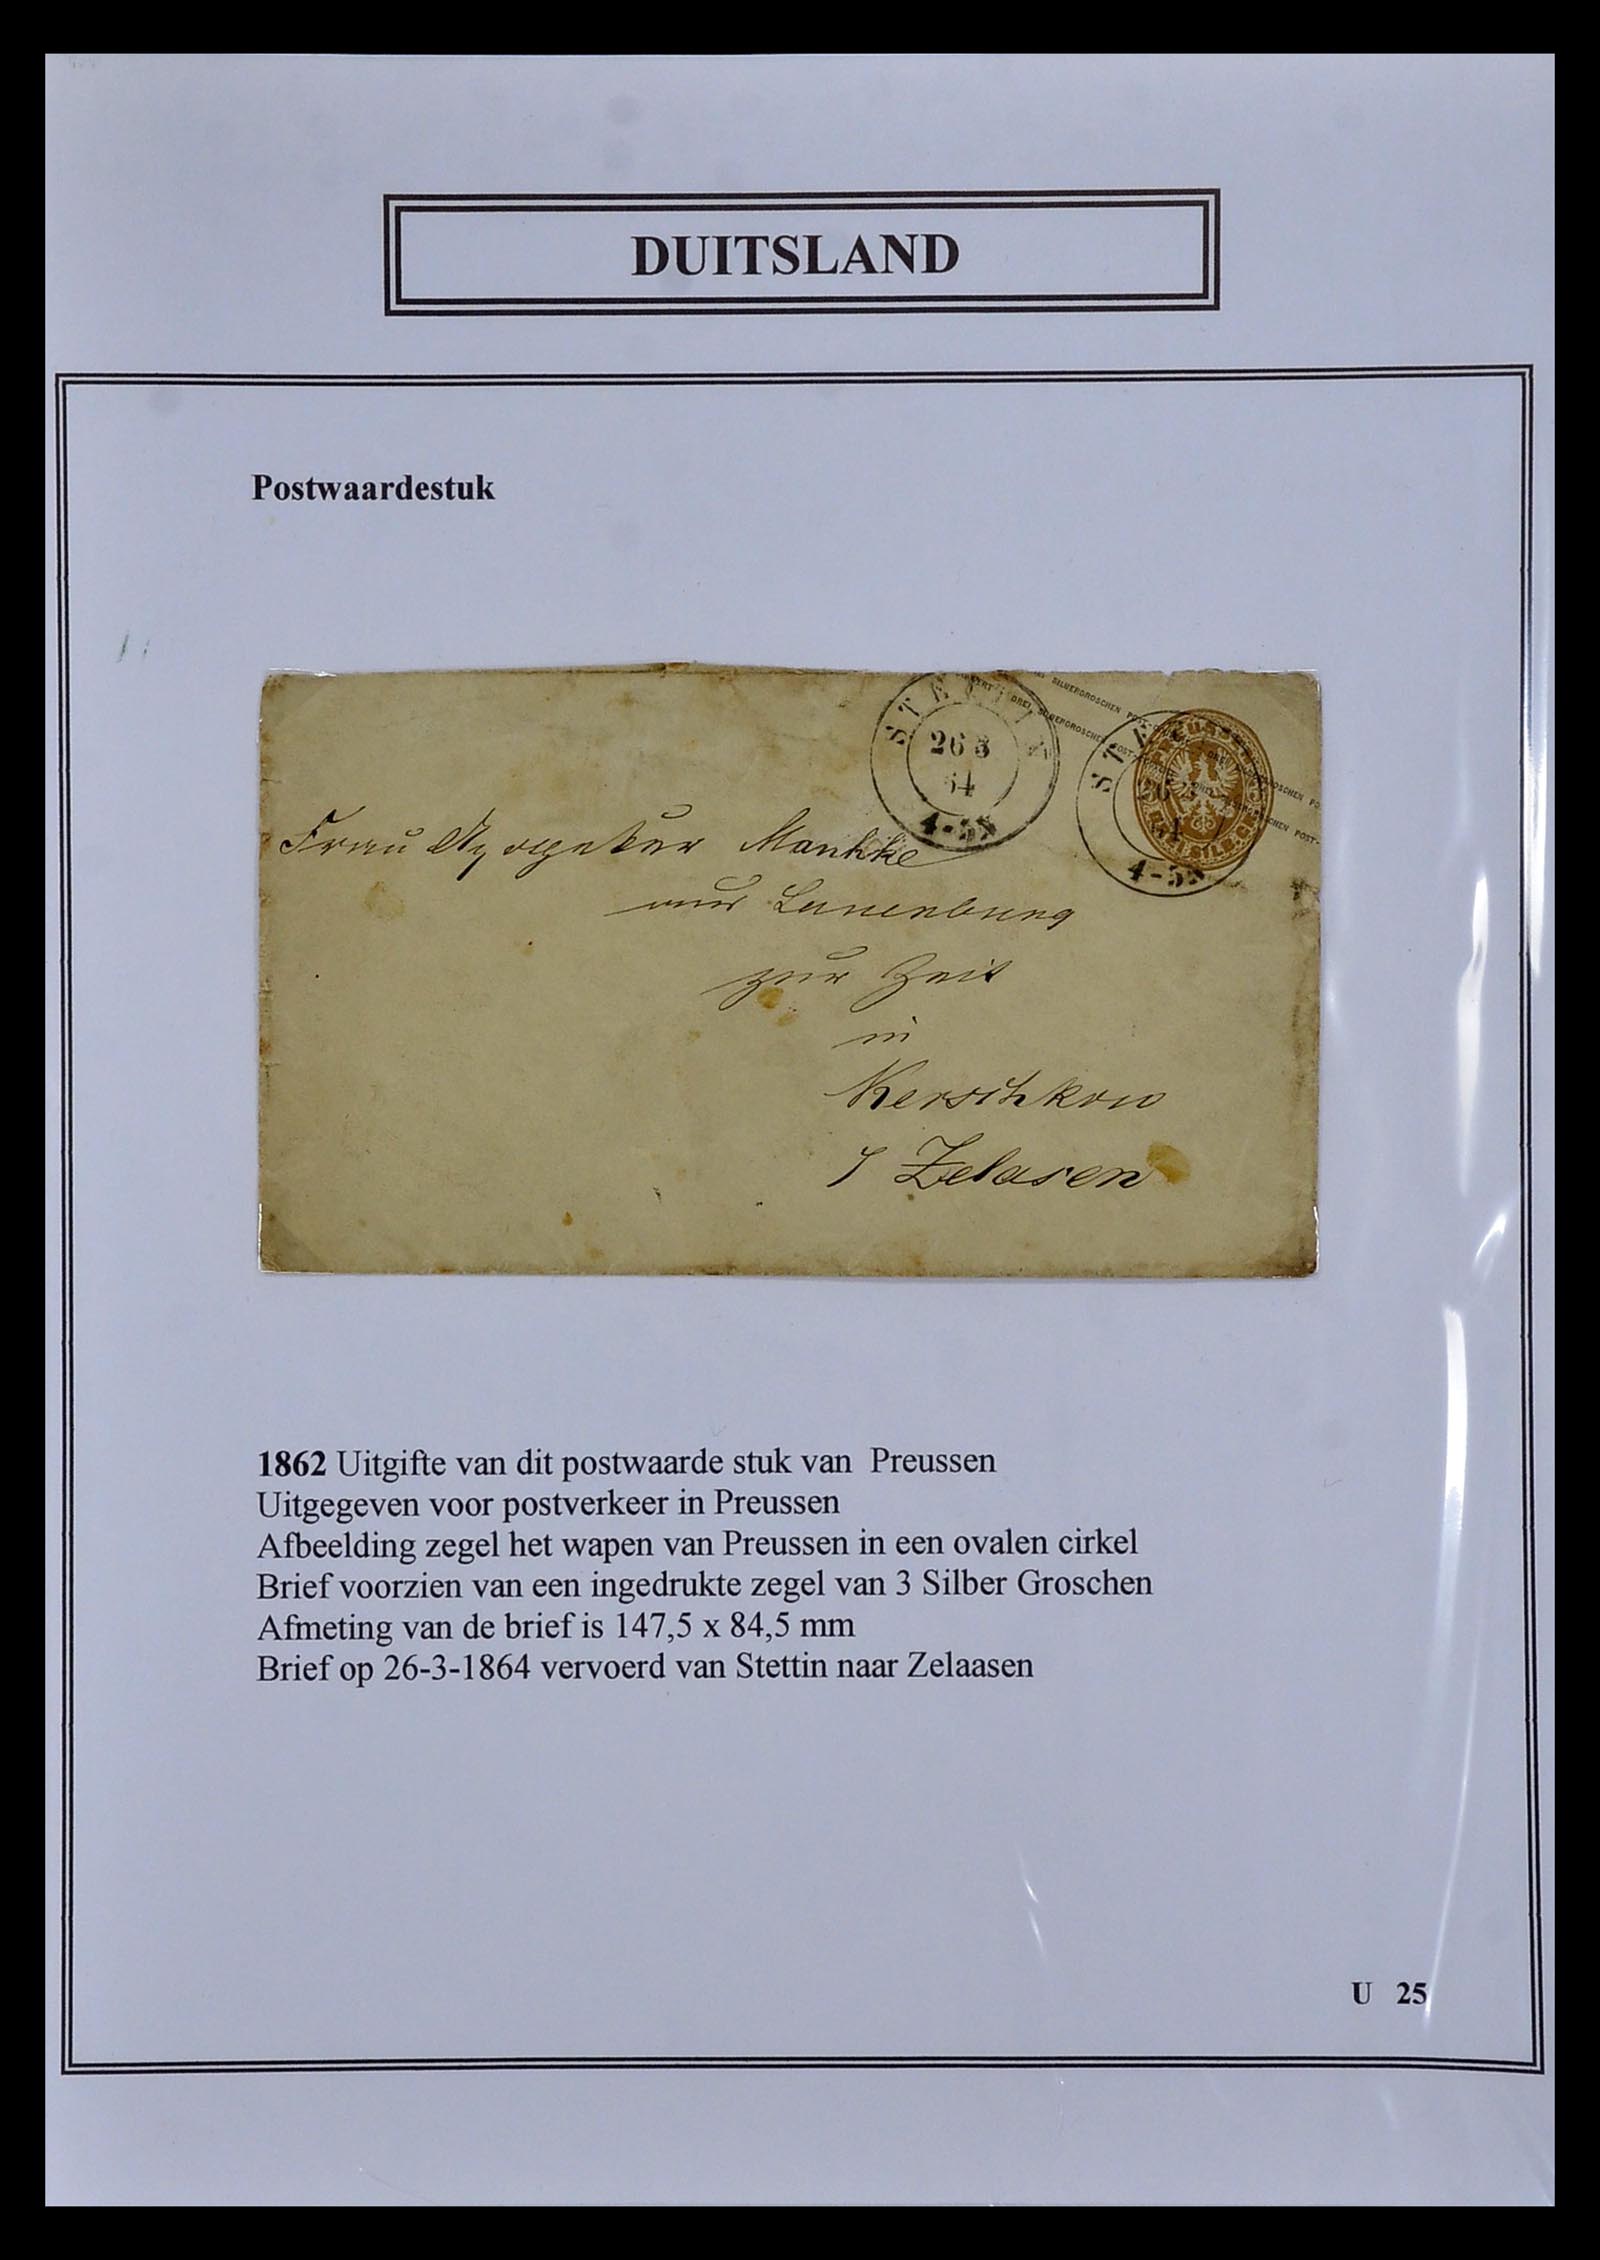 DUITSLAND
Postwaardestuk
STETTIN
26 3
64
4-5N
SILBERGROSCHEN POST-
DREI SILBERGROSCHEN POST-
PREUSSEN
DREI SILB. GR.
4-5N
Frau Apotheker Manhke
aus Lauenburg
zur Zeit
in
Kerschkow
Zelasen
1862 Uitgifte van dit postwaarde stuk van Preussen
Uitgegeven voor postverkeer in Preussen
Afbeelding zegel het wapen van Preussen in een ovalen cirkel
Brief voorzien van een ingedrukte zegel van 3 Silber Groschen
Afmeting van de brief is 147,5 x 84,5 mm
Brief op 26-3-1864 vervoerd van Stettin naar Zelaasen
U 25